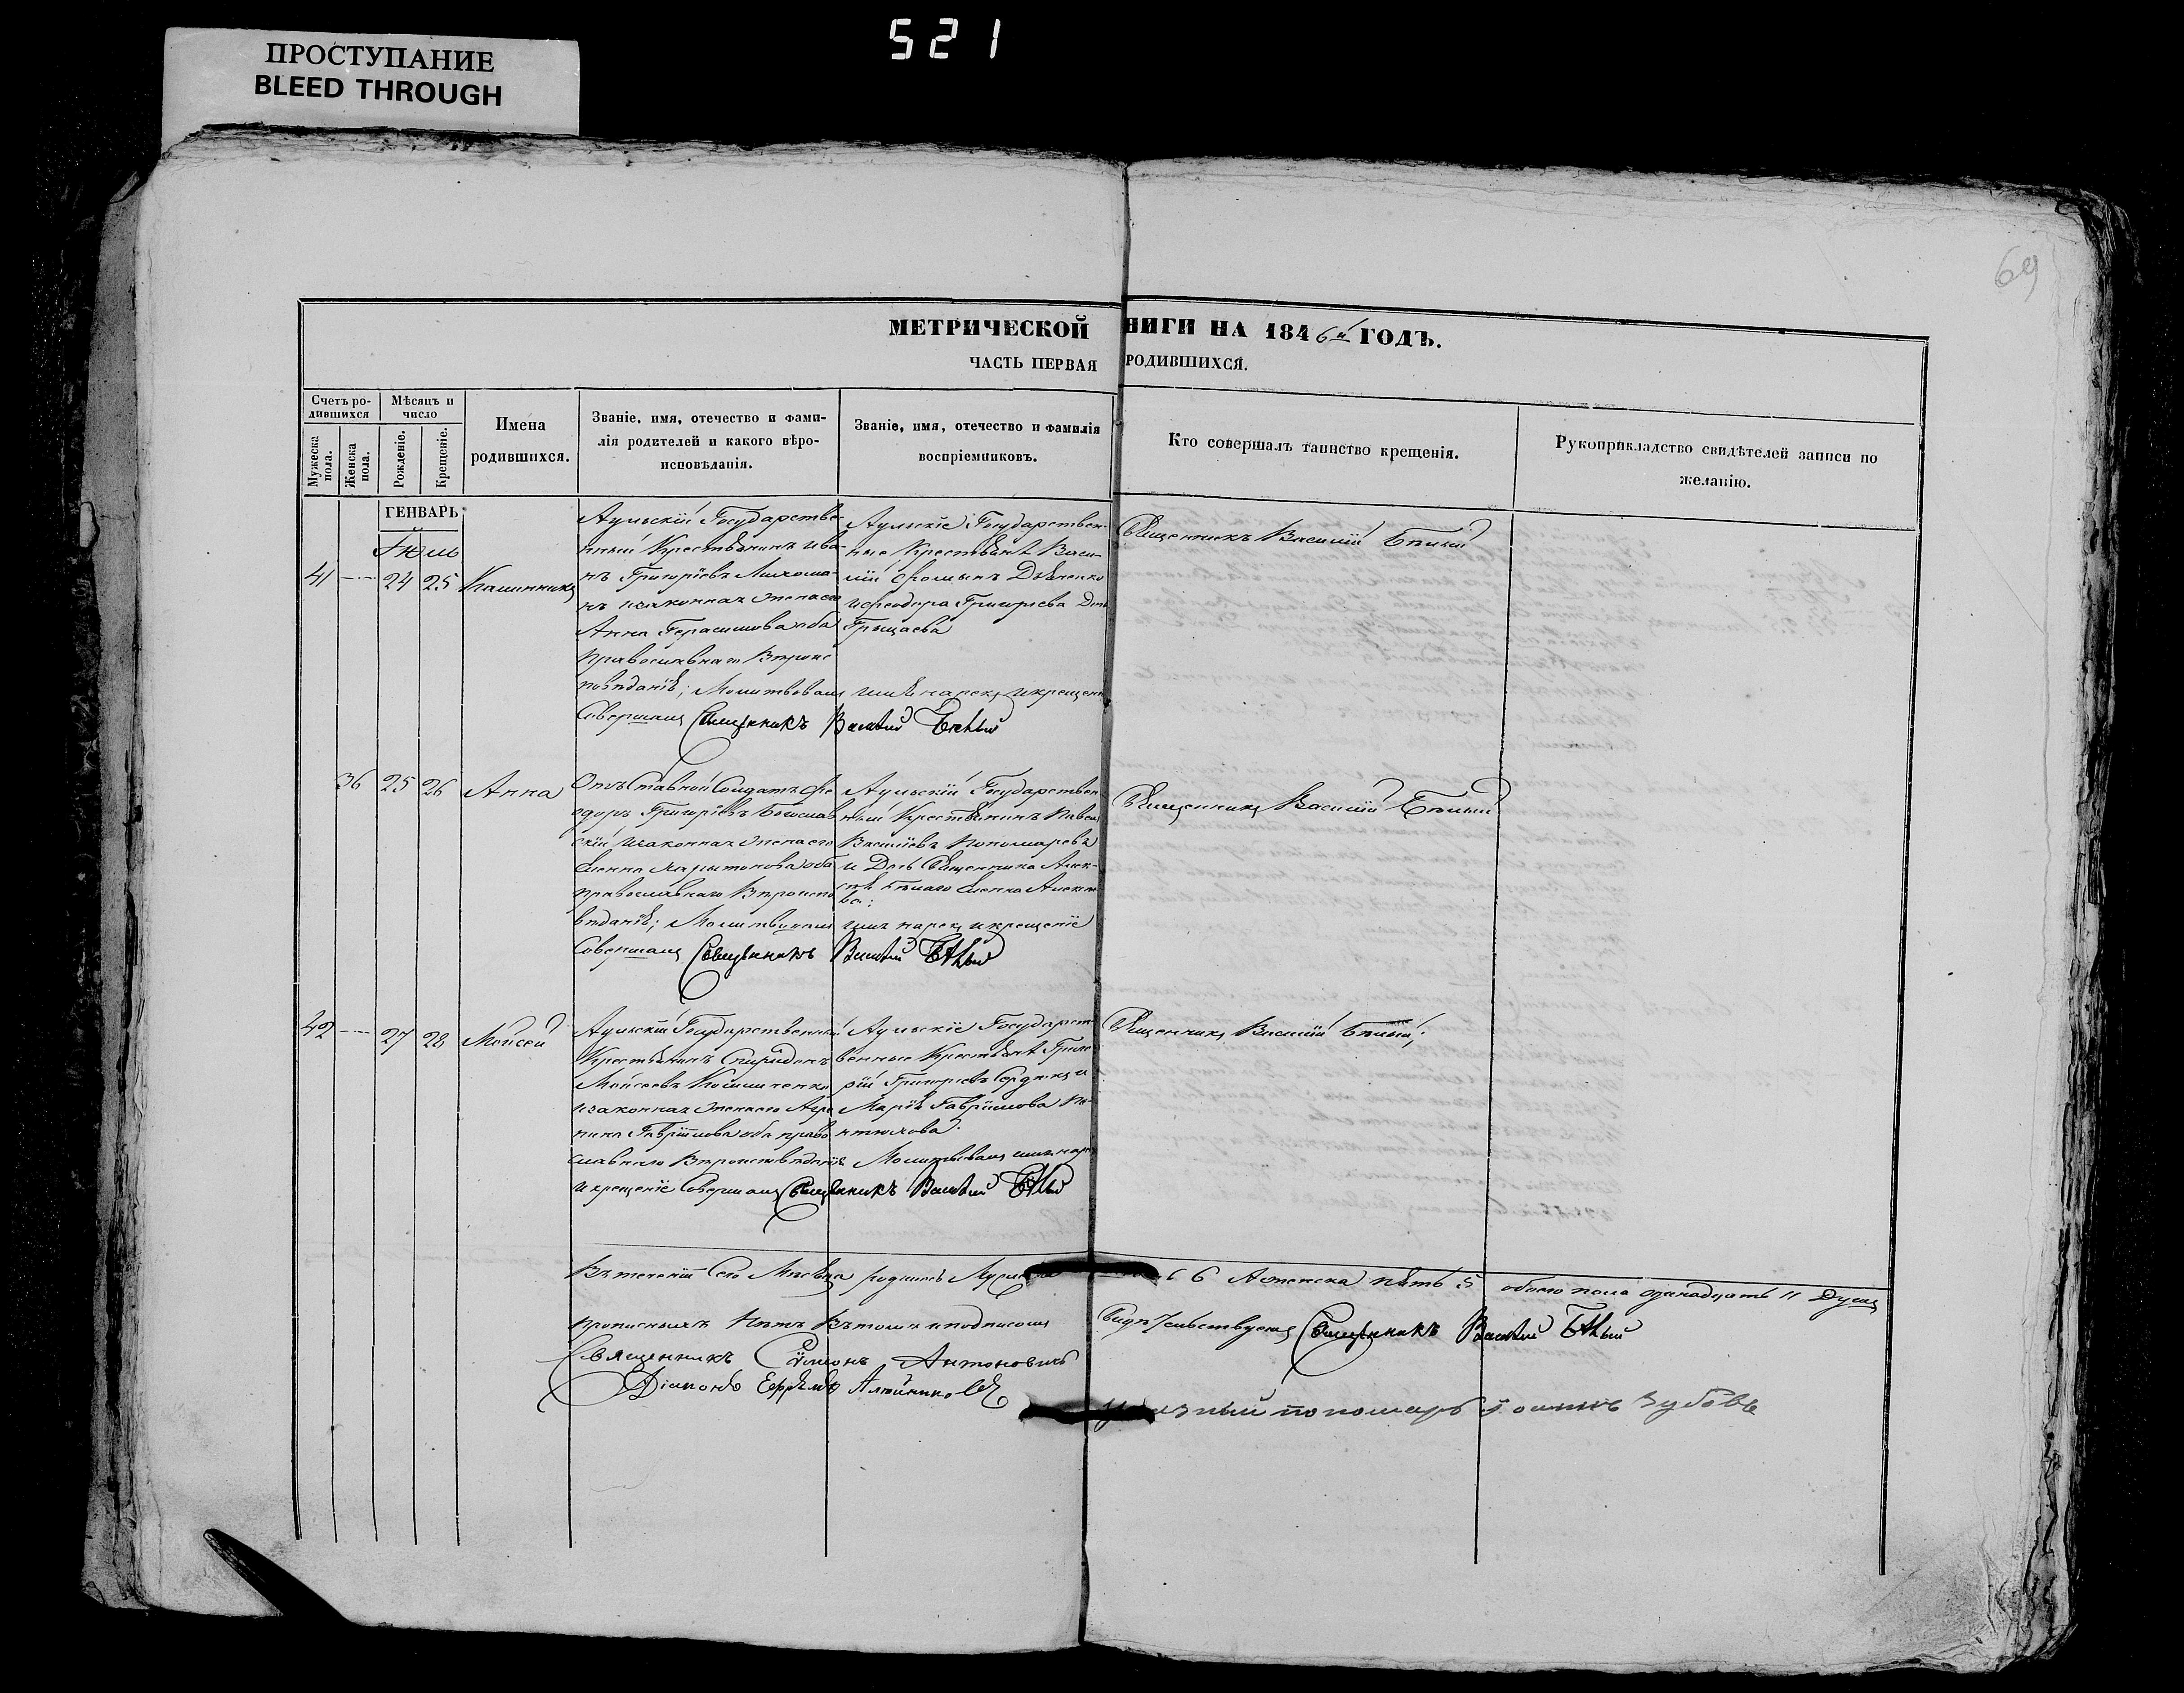 521
ПРОСТУПАНИЕ
BLEED THROUGH
69
МЕТРИЧЕСКОЙ НИГИ НА 1846й ГОДЪ.
ЧАСТЬ ПЕРВАЯ РОДИВШИХСЯ.
Счетъ ро-
дившихся
Мужеска
пола.
Женска
пола.
Мѣсяцъ и
число
Рожденіе.
Крещеніе.
Имена
родившихся.
Званіе, имя, отечество и фами-
лія родителей и какого вѣро-
исповѣданія.
Званіе, имя, отечество и фамилія
воспріемниковъ.
Кто совершалъ таинство крещенія.
Рукоприкладство свидѣтелей записи по
желанію.
ГЕНВАРЬ
Іюль
41 24 25 Калинникъ
Аульскій Государстве-
нный Крестьянинъ Ива-
нъ Григоріевъ
нъ изаконная жена его
Анна Герасимова оба
православнаго Вѣроис
повѣданія; Молитвовалъ имя нарекъ и крещен
Совершалъ Священникъ Василій Бѣлый
Аульскіе Государствен-
ные Крестьяне Васи-
лій
и Феодора Григорьева Дочь
Священникъ Василій Бѣлый
36 25 26 Анна
Отъставной Солдатъ Фе
одоръ Григоріевъ Богослав
скій изаконная жена его
Елена Харитонова оба
православнаго Вѣроиспо
вѣданія; Молитвовалъ имя нарекъ и крещеніе
Совершалъ Священникъ Василій Бѣлый
Аульскій Государствен
ный Крестьянинъ Павелъ
Васильевъ Пономаревъ
и Дочь Священника Алек-
сѣя Бѣлаго Елена Алексѣе
ва:
Священникъ Василій Бѣлый
42 27 28 Моисей
Аульскій Государственный
Крестьянинъ Спиридонъ
Моисеевъ
изаконная жена его Агра
пина Гавріилова оба право
славнаго Вѣроисповѣданія Молитвовалъ имя наре
и крещеніе Совершалъ Священникъ Василій Бѣлый
Аульскіе Государст-
венные Крестьяне Григо
рій Григорьевъ Сердюкъ и
Марія Гавріилова Па-
нтюхова.
Священникъ Василій Бѣлый;
Въ теченіи Сего Мѣсяца родилось 6 Аженска пять 5 обоего пола одинадцать 11 Душъ
прописныхъ Нѣтъ Вътомъ иподписомъ Свидѣтельствуемъ Священникъ Василій Бѣлый
Священникъ Симеонъ Антоновичъ
Діаконъ Ефремъ
пономарь Зубовъ